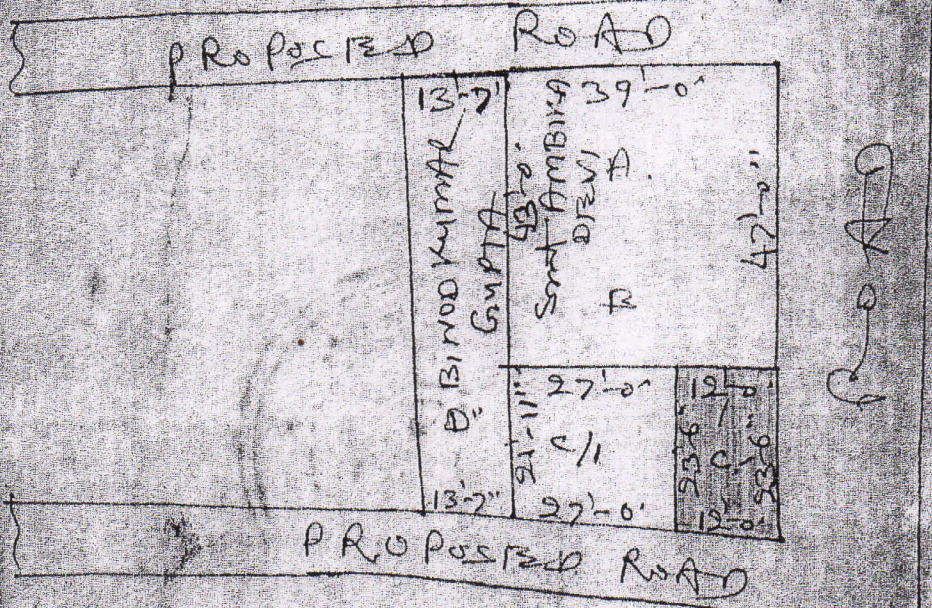 PROPOSED ROAD
13'-7"
39'-0"
BINOD KUMAR
GUPTA
"D"
Smt AMBIKA
DEVI
A.
B
47'-0"
ROAD
27'-0"
12'-0"
21'-11"
C/1
23'-6"
C
23'-6"
13'-7"
27'-0"
12'-0"
PROPOSED ROAD